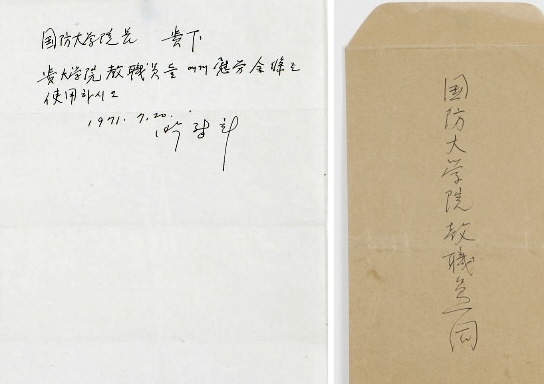 国防大学院長 貴下
貴大学院 教職員들에게 慰労金條로
使用하시오
1971. 7. 20.
박정희
国防大学院教職員一同